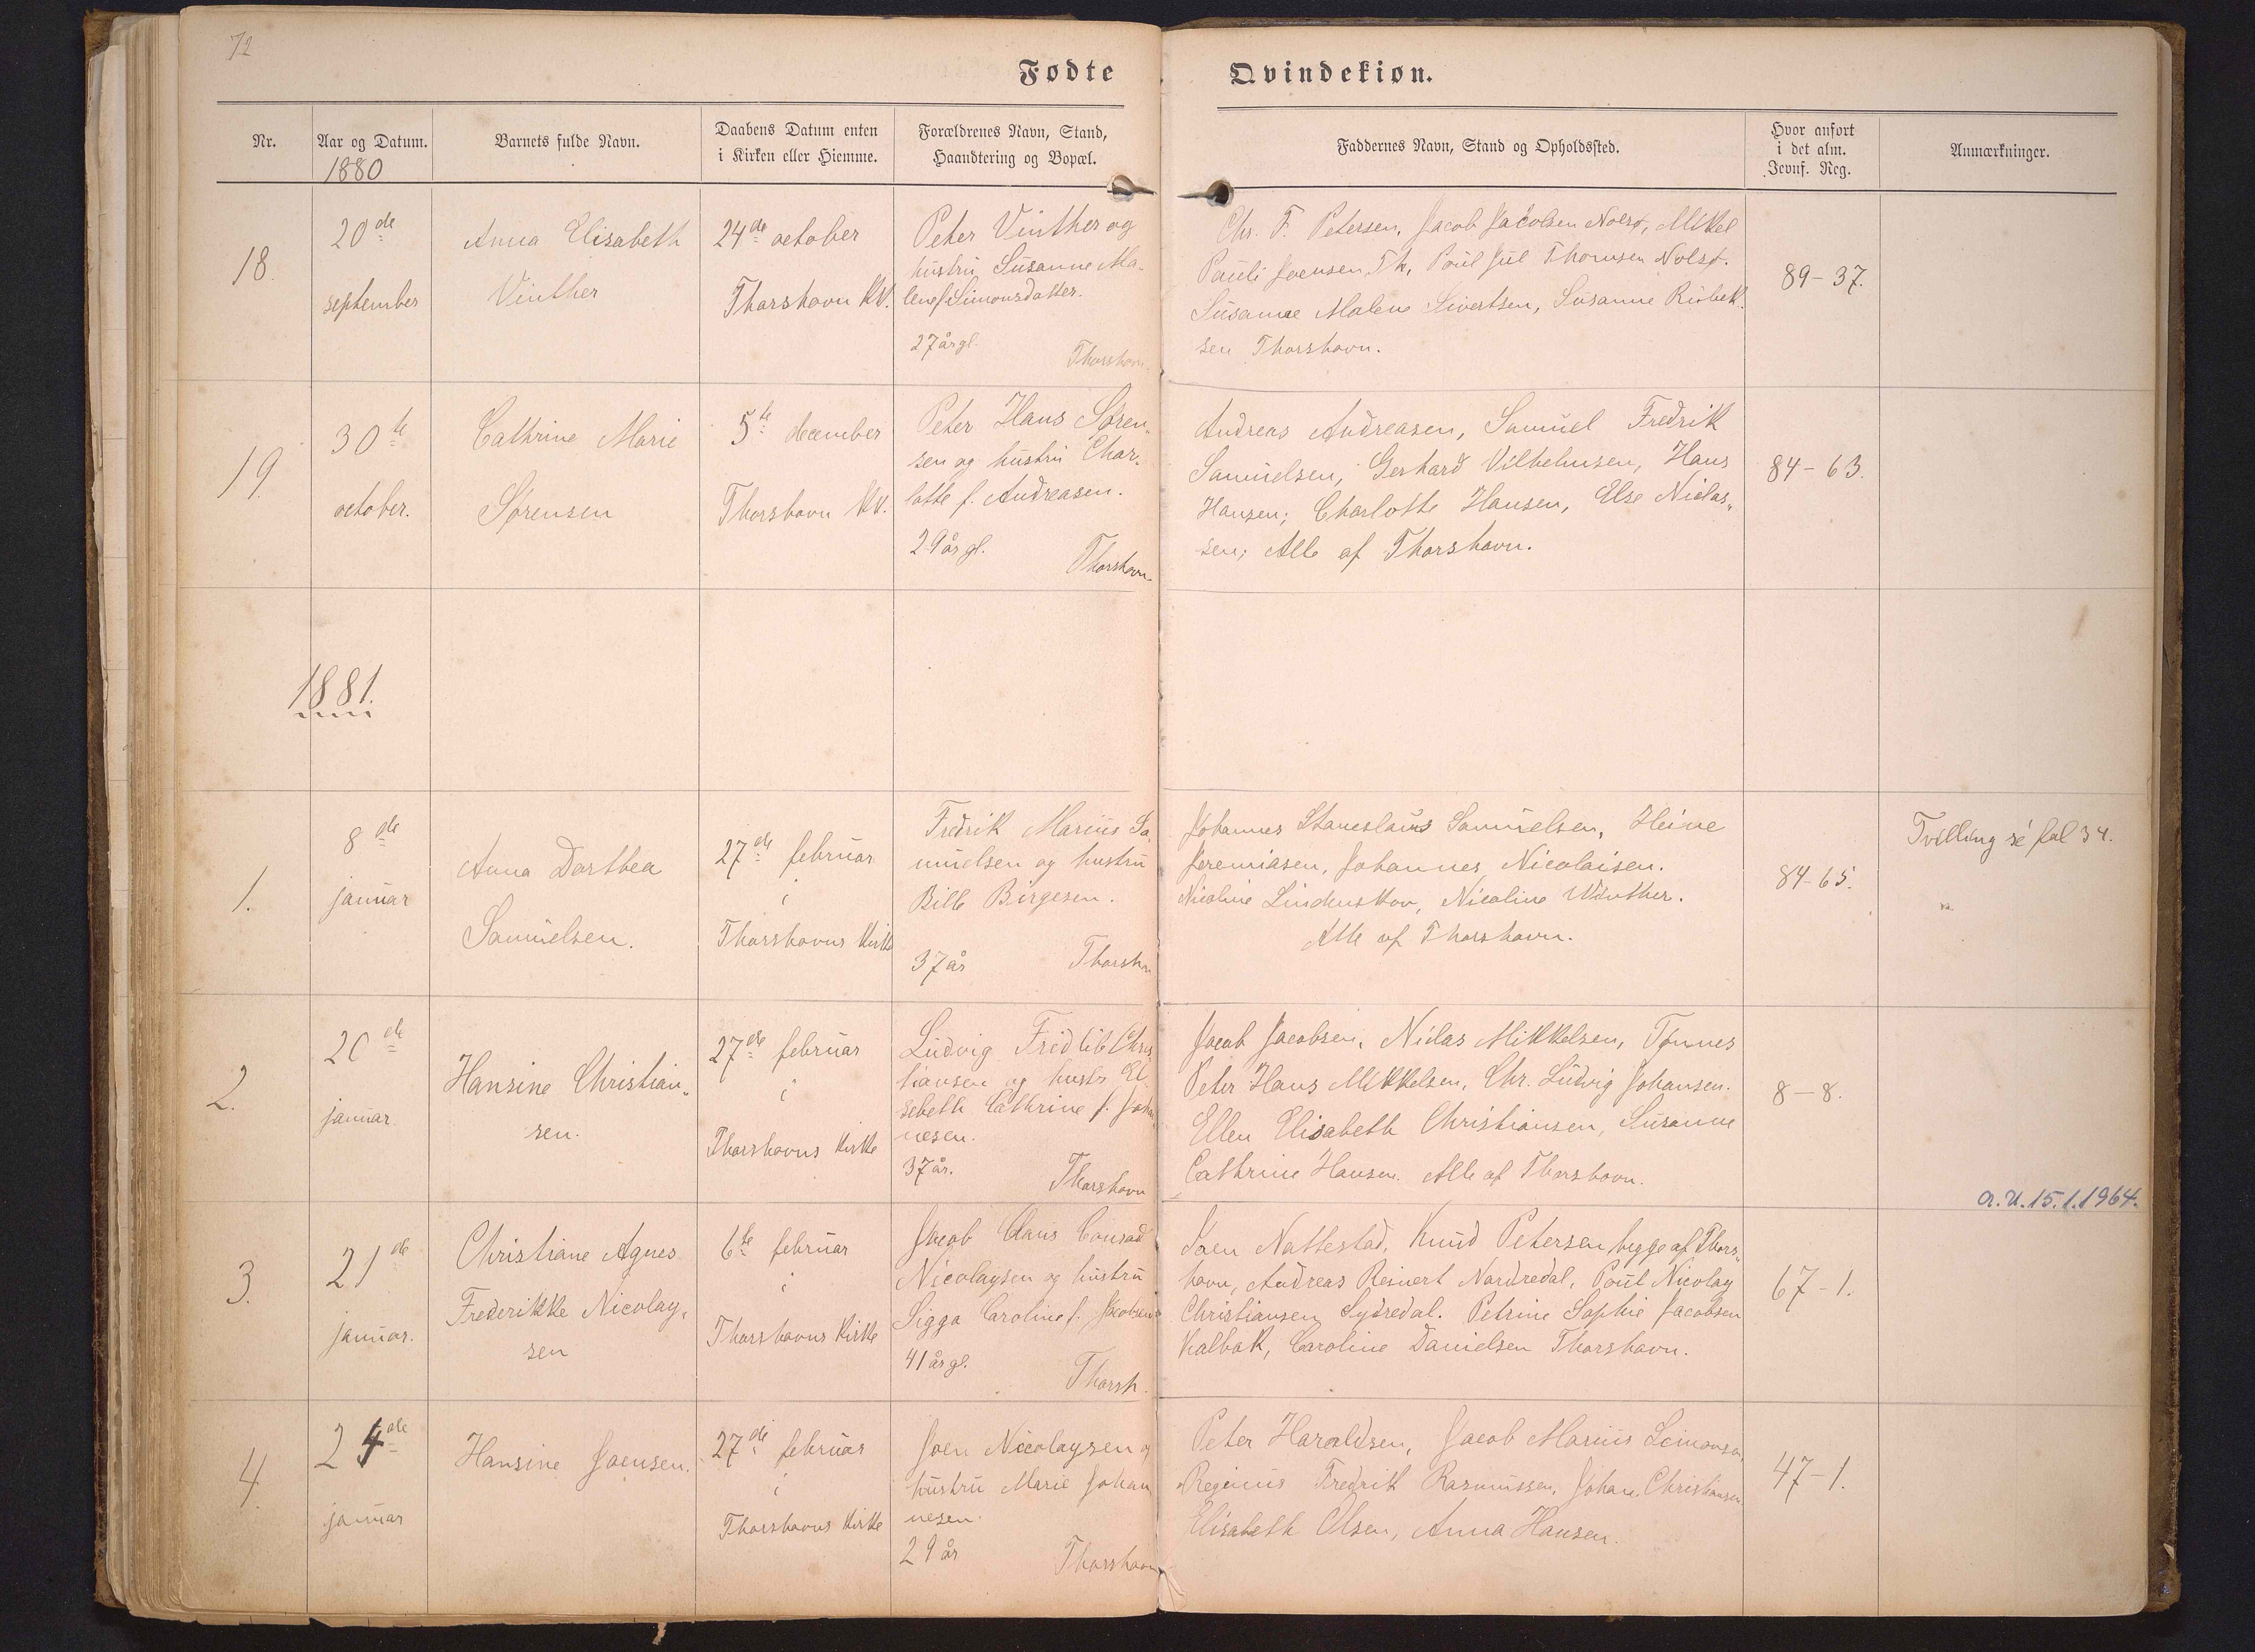 72
Fødte Qvindekiøn.
Nr.
Aar og Datum.
1880
Barnets fulde Navn.
Daabens Datum enten
i Kirken eller Hiemme.
Forældrenes Navn, Stand,
Haandtering og Bopæl.
Faddernes Navn, Stand og Opholdssted.
Hvor anført
i det alm.
Jevnf. Reg.
Anmærkninger.
18.
20de
september
Anna Elisabeth
Vinther
24de october
Thorshavn KK.
Peter Vinther og
hustru Susanne Ma-
lene f. Simonsdatter.
27 år gl.
Thorshavn
Chr. F. Petersen, Jacob Jacobsen Nolsø, Mikel
Pauli Joensen Th, Poul Jul Thomsen Nolsø.
Susanne Malene Sivertsen, Susanne
sen Thorshavn.
89-37.
19.
30te
october.
Cathrine Marie
Sørensen
5te december
Thorshavn KK.
Peter Hans Søren-
sen og hustru Char-
lotte f. Andreasen.
29 år gl.
Thorshavn
Andreas Andreasen, Samuel Fredrik
Samuelsen, Gerhard Vilhelmsen, Hans
Hansen; Charlotte Hansen, Else Niclas-
sen; Alle af Thorshavn.
84-63.
1881.
1.
8de
januar
Anna Dorthea
Samuelsen.
27de februar
i
Thorshavns Kirke
Fredrik Marius Sa
muelsen og hustru
Bille Birgesen.
37 år
Thorshn
Johannes Staneslaus Samuelsen, Heine
Jeremiasen, Johannes Nicolaisen.
Nicoline Lindenskov, Nicoline Winther.
Alle af Thorshavn.
84-65.
Tvilling sé fol 34.
2.
20de
januar
Hansine Christian-
sen.
27de februar
i
Thorshavns Kirke
Ludvig Fredlib Chris
tiansen og hustr El
sebeth Cathrine f. Johan
nesen.
37 år.
Thorshavn
Jacob Jacobsen, Niclas Mikkelsen, Tønnes
Peter Hans Mikkelsen, Chr. Ludvig Johansen.
Ellen Elisabeth Christiansen, Susanne
Cathrine Hansen. Alle af Thorshavn.
8-8.
a.u. 15.1.1964.
3.
21de
januar.
Christiane Agnes
Frederikke Nicolay-
sen
6te februar
i
Thorshavns Kirke
Jacob Claus Conrad
Nicolaysen og hustru
Sigga Caroline f. Jacobsen
41 år gl.
Thorsh.
Joen Nattestad, Knud Petersen begge af Thors-
havn, Andreas Reinert Nordredal, Poul Nicolay
Christiansen Sydredal. Petrine Sophie Jacobsen
Kalbak, Caroline Danielsen Thorshavn.
67-1.
4.
24de
januar
Hansine Joensen.
27de februar
i
Thorshavns Kirke
Joen Nicolaysen og
hustru Marie Johan
nesen.
29 år
Thorshavn
Peter Haraldsen, Jacob Marius Simonsen,
Reginus Fredrik Rasmussen, Johan Christiansen
Elisabeth Olsen, Anna Hansen.
47-1.